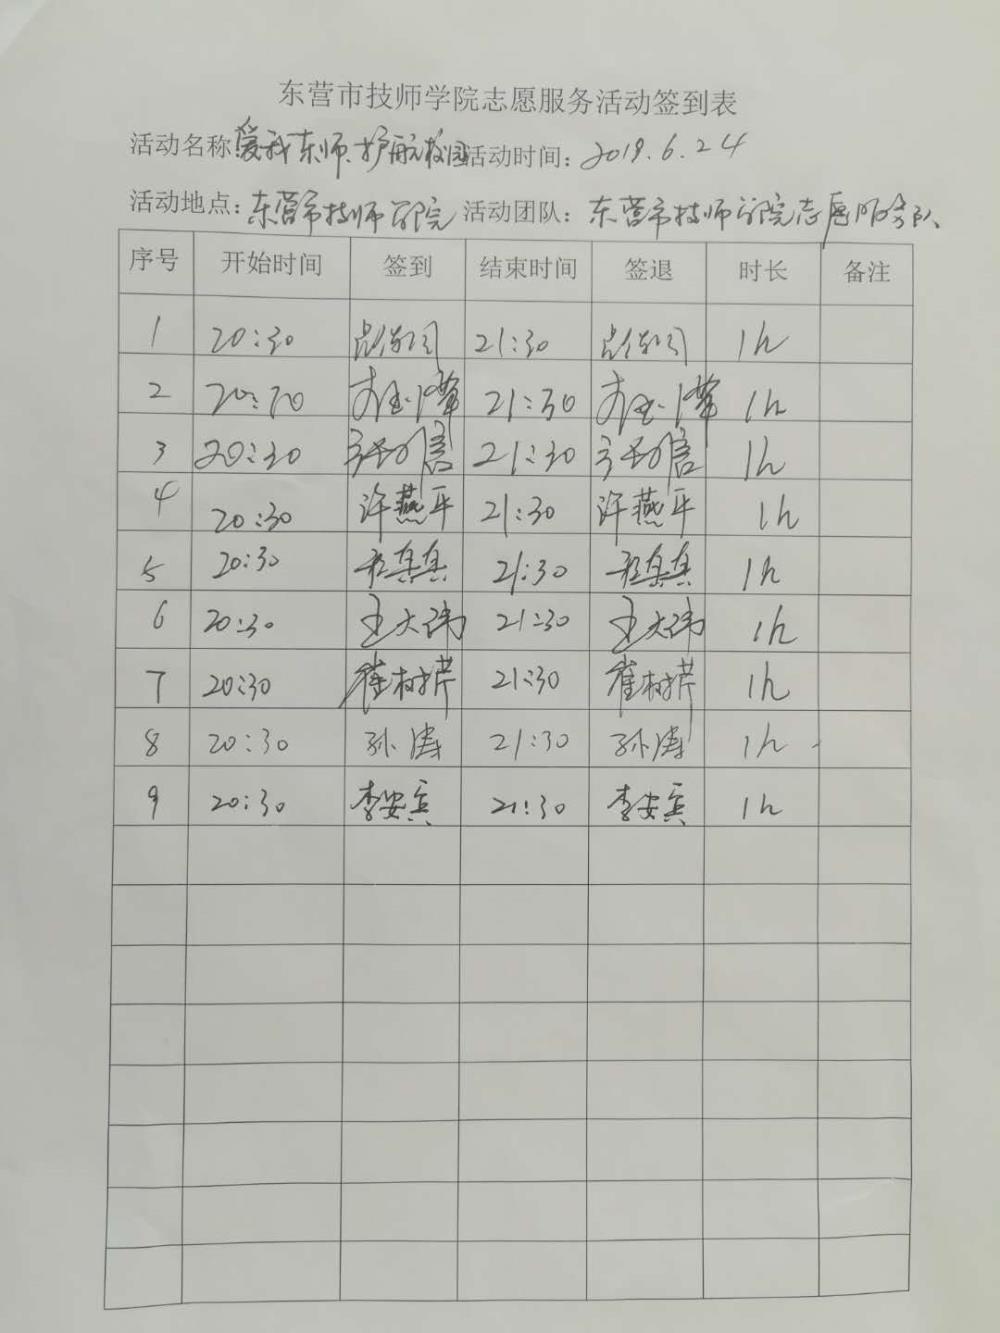 东营市技师学院志愿服务活动签到表
活动名称 爱我东师、护航校园 活动时间：2019.6.24
活动地点：东营市技师学院 活动团队：东营市技师学院志愿服务队
序号 开始时间 签到 结束时间 签退 时长 备注
1 20:30 21:30 1h
2 20:30 21:30 1h
3 20:30 21:30 1h
4 20:30 许燕平 21:30 许燕平 1h
5 20:30 21:30 1h
6 20:30 王大伟 21:30 王大伟 1h
7 20:30 崔树芹 21:30 崔树芹 1h
8 20:30 孙涛 21:30 孙涛 1h
9 20:30 李安宾 21:30 李安宾 1h